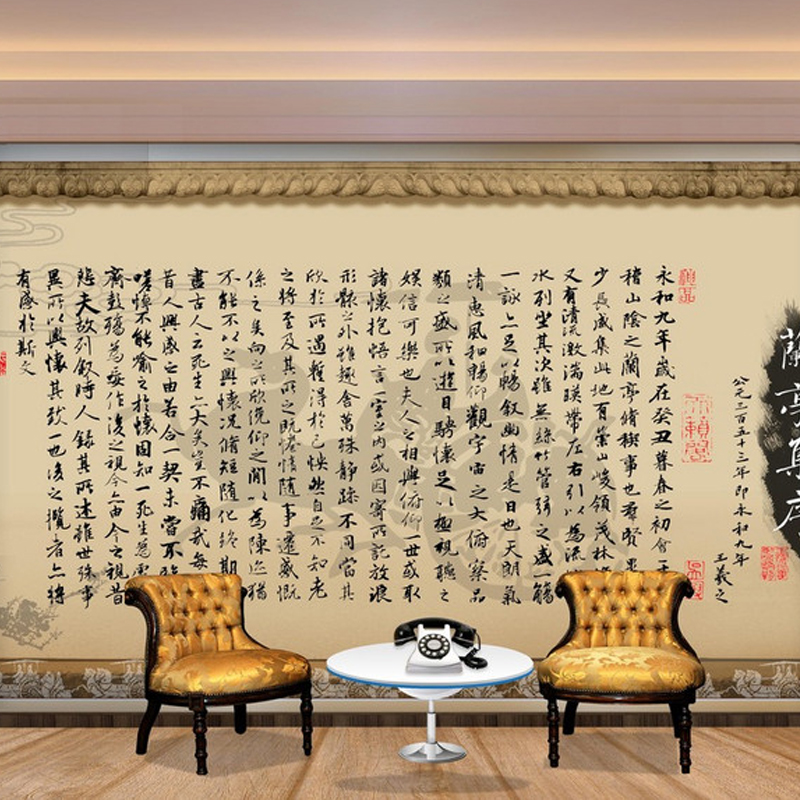 蘭亭真序
公元三百五十三年即永和九年
王羲之
永和九年歲在癸丑暮春之初會
稽山陰之蘭亭脩稧事也群賢畢
少長咸集此地有崇山峻領茂林
又有清流激湍暎帶左右引以為流
水列坐其次雖無絲竹管弦之盛一觴
一詠亦足以暢敘幽情是日也天朗氣
清惠風和暢仰觀宇宙之大俯察品
類之盛所以遊目騁懷足以極視聽之
娛信可樂也夫人之相與俯仰一世或取
諸懷抱悟言一室之內或因寄所託放浪
形骸之外雖趣舍萬殊靜躁不同當其
欣於所遇暫得於己怏然自足不知老
之將至及其所之既惓情隨事遷感慨
係之矣向之所欣俛仰之閒以為陳迹猶
不能不以之興懷況脩短隨化終期
盡古人云死生亦大矣豈不痛哉每
昔人興感之由若合一契未嘗不臨
嗟悼不能喻之於懷固知一死生為虛
齊彭殤為妄作後之視今亦由今之視昔
悲夫故列敘時人錄其所述雖世殊事
異所以興懷其致一也後之攬者亦將
有感於斯文